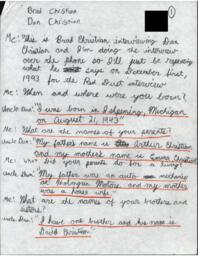 Brad Christian
Dan Christian
1
Me: "This is Brad Christian interviewing Dan
Christian and I'm doing the interview
over the phone so I'll just be repeating
what he says on December first,
1993 for the Red Dust interview
Me: When and where were you born?
Uncle Dan: "I was born in Ishpeming, Michigan
on August 21, 1943"
Me: What are the names of your parents?
Uncle Dan: "My father's name is Arthur Christian
and my mother's name is Christian
Me: what did your parents do for a living?
Uncle Dan: My father was an auto mechanic
at Motors, and my mother
was a house wife"
Me: What are the names of your brothers and
sisters?
Uncle Dan: "I have one brother and his name is
David Christian"